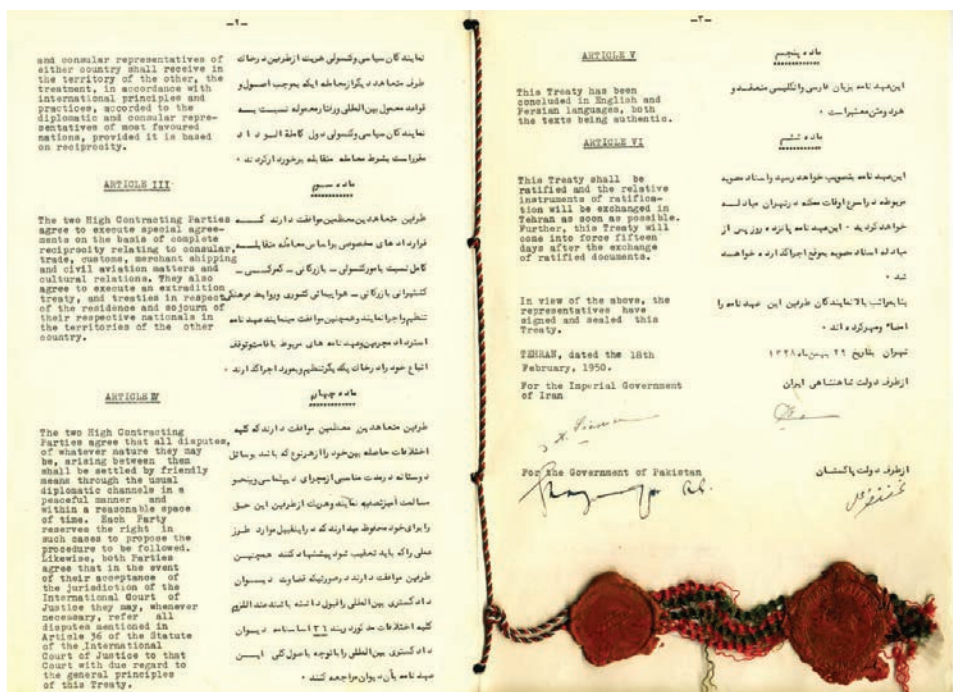 —۲—
and consular representatives of
either country shall receive in
the territory of the other, the
treatment, in accordance with
international principles and
practices, accorded to the
diplomatic and consular repre-
sentatives of most favoured
nations, provided it is based
on reciprocity.
ARTICLE III
The two High Contracting Parties
agree to execute special agree-
ments on the basis of complete
reciprocity relating to consular,
trade, customs, merchant shipping
and civil aviation matters and
cultural relations. They also
agree to execute an extradition
treaty, and treaties in respect
of the residence and sojourn of
their respective nationals in
the territories of the other
country.
ARTICLE IV
The two High Contracting
Parties agree that all disputes,
of whatever nature they may
be, arising between them
shall be settled by friendly
means through the usual
diplomatic channels in a
peaceful manner and
within a reasonable space
of time. Each Party
reserves the right in
such cases to propose the
procedure to be followed.
Likewise, both Parties
agree that in the event
of their acceptance of
the jurisdiction of the
International Court of
Justice they may, whenever
necessary, refer all
disputes mentioned in
Article 36 of the Statute
of the International
Court of Justice to that
Court with due regard to
the general principles
of this Treaty.
نمایندگان سیاسی وکنسولی هریک ازطرفین درخاک
طرف متعاهد دیگر ازمعامله ایکه بموجب اصول و
قواعد معمول بین المللی ورفتار معموله نسبت به
نمایندگان سیاسی وکنسولی دول کاملة الوداد
مقرراست بشرط معامله متقابله برخوردار گردند ۰
ماده سوم
طرفین متعاهدین معظمین موافقت دارند که
قراردادهای مخصوصی براساس معامله متقابله
کامل نسبت بامورکنسولی ـ بازرگانی ـ گمرکی ـ
کشتیرانی بازرگانی ـ هواپیمائی کشوری وروابط فرهنگی
تنظیم واجرا نمایند وهمچنین موافقت مینمایند عهدنامه
استرداد مجرمین وعهدنامه های مربوط باقامت وتوقف
اتباع خود را درخاک یکدیگر تنظیم وبمورد اجرا گذارند ۰
ماده چهارم
طرفین متعاهدین معظمین موافقت دارند که کلیه
اختلافات حاصله بین خود را ازهرنوع که باشد بوسائل
دوستانه درمدت مناسبی ازمجرای دیپلماسی وبنحو
مسالمت آمیز تصفیه نمایند وهریک ازطرفین این حق
را برای خود محفوظ میدارند که دراینقبیل موارد طرز
عملی راکه باید تعقیب شود پیشنهاد کنند همچنین
طرفین موافقت دارند درصورتیکه قضاوت دیوان
دادگستری بین المللی را قبول داشته باشند عنداللزوم
کلیه اختلافات مذکور دربند ۳۶ اساسنامه دیوان
دادگستری بین المللی را باتوجه باصول کلی این
عهدنامه بآن دیوان مراجعه کنند ۰
—۳—
ARTICLE V
This Treaty has been
concluded in English and
Persian languages, both
the texts being authentic.
ARTICLE VI
This Treaty shall be
ratified and the relative
instruments of ratifica-
tion will be exchanged in
Tehran as soon as possible.
Further, this Treaty will
come into force fifteen
days after the exchange
of ratified documents.
In view of the above, the
representatives have
signed and sealed this
Treaty.
TEHRAN, dated the 18th
February, 1950.
For the Imperial Government
of Iran
For the Government of Pakistan
ماده پنجم
این عهدنامه بزبان فارسی وانگلیسی منعقد و
هردو متن معتبر است ۰
ماده ششم
این عهدنامه بتصویب خواهد رسید واسناد مصوبه
مربوطه دراسرع اوقات ممکنه درتهران مبادله
خواهد گردید ۰ این عهدنامه پانزده روز پس از
مبادله اسناد مصوبه بموقع اجرا گذارده خواهد
شد ۰
بنابمراتب بالا نمایندگان طرفین این عهدنامه را
امضاء ومهر کرده اند ۰
تهران بتاریخ ۲۹ بهمن ماه ۱۳۲۸
ازطرف دولت شاهنشاهی ایران
ازطرف دولت پاکستان